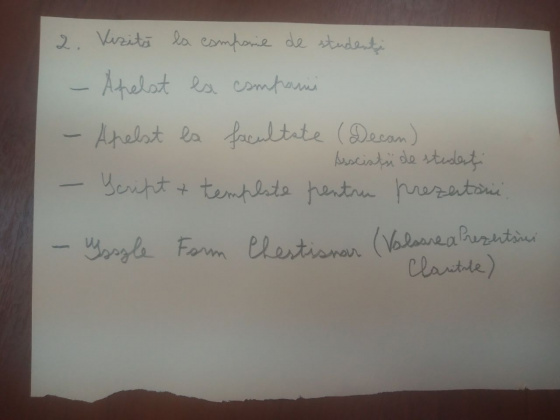 2. Vizită la companie de studenți
- Apelat la companii
- Apelat la facultate (Decan)
Asociații de studenți
- Script + template pentru prezentării.
- Google Form Chestionar (Valoarea Prezentării
Clautile)